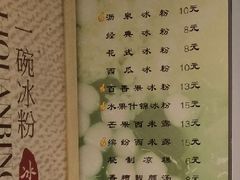 一碗冰粉
冰
LIQUANBING
沥泉冰粉 10元
经典冰粉 8元
花式冰粉 8元
西瓜冰粉 10元
百香果冰粉 13元
水果什锦冰粉 15元
芒果西米露 13元
缤纷西米露 15元
秘制凉糕 6元